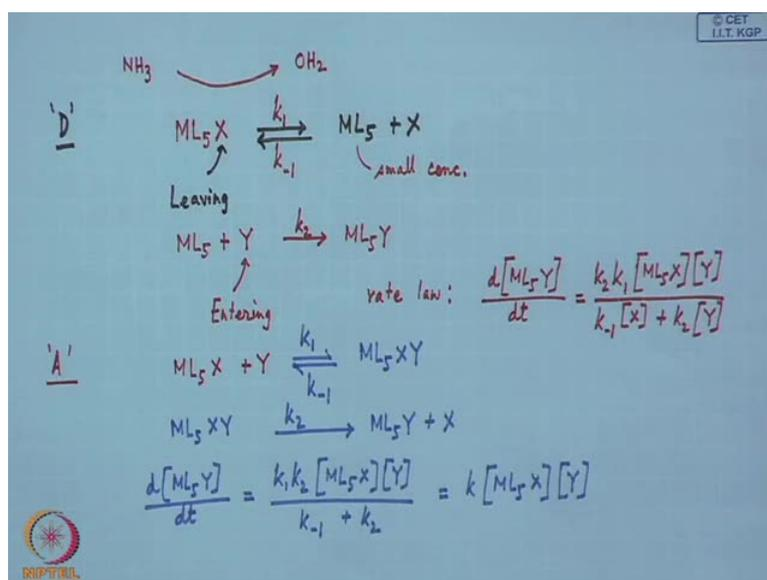 © CET
I.I.T. KGP
NH₃ ⟶ OH₂
'D' ML₅X ⇌ ML₅ + X
k₁
k₋₁
small conc.
Leaving
ML₅ + Y ⟶ ML₅Y
k₂
Entering
rate law : d[ML₅Y]/dt = k₂k₁[ML₅X][Y] / k₋₁[X] + k₂[Y]
'A' ML₅X + Y ⇌ ML₅XY
k₁
k₋₁
ML₅XY ⟶ ML₅Y + X
k₂
d[ML₅Y]/dt = k₁k₂[ML₅X][Y] / k₋₁ + k₂ = k[ML₅X][Y]
NPTEL